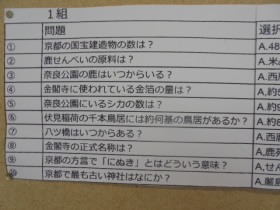 1組
問題 選択
① 京都の国宝建造物の数は？ A.48
② 鹿せんべいの原料は？ A.米
③ 奈良公園の鹿はいつからいる？ A.西
④ 金閣寺に使われている金箔の量は？ A.約5
⑤ 奈良公園にいるシカの数は？ A.約
⑥ 伏見稲荷の千本鳥居には約何基の鳥居があるか？ A.約
⑦ 八ツ橋はいつからある？ A.
⑧ 金閣寺の正式名称は？ A.鹿
⑨ 京都の方言で「にぬき」とはどういう意味？ A.
⑩ 京都で最も古い神社はなにか？ A.嚴島